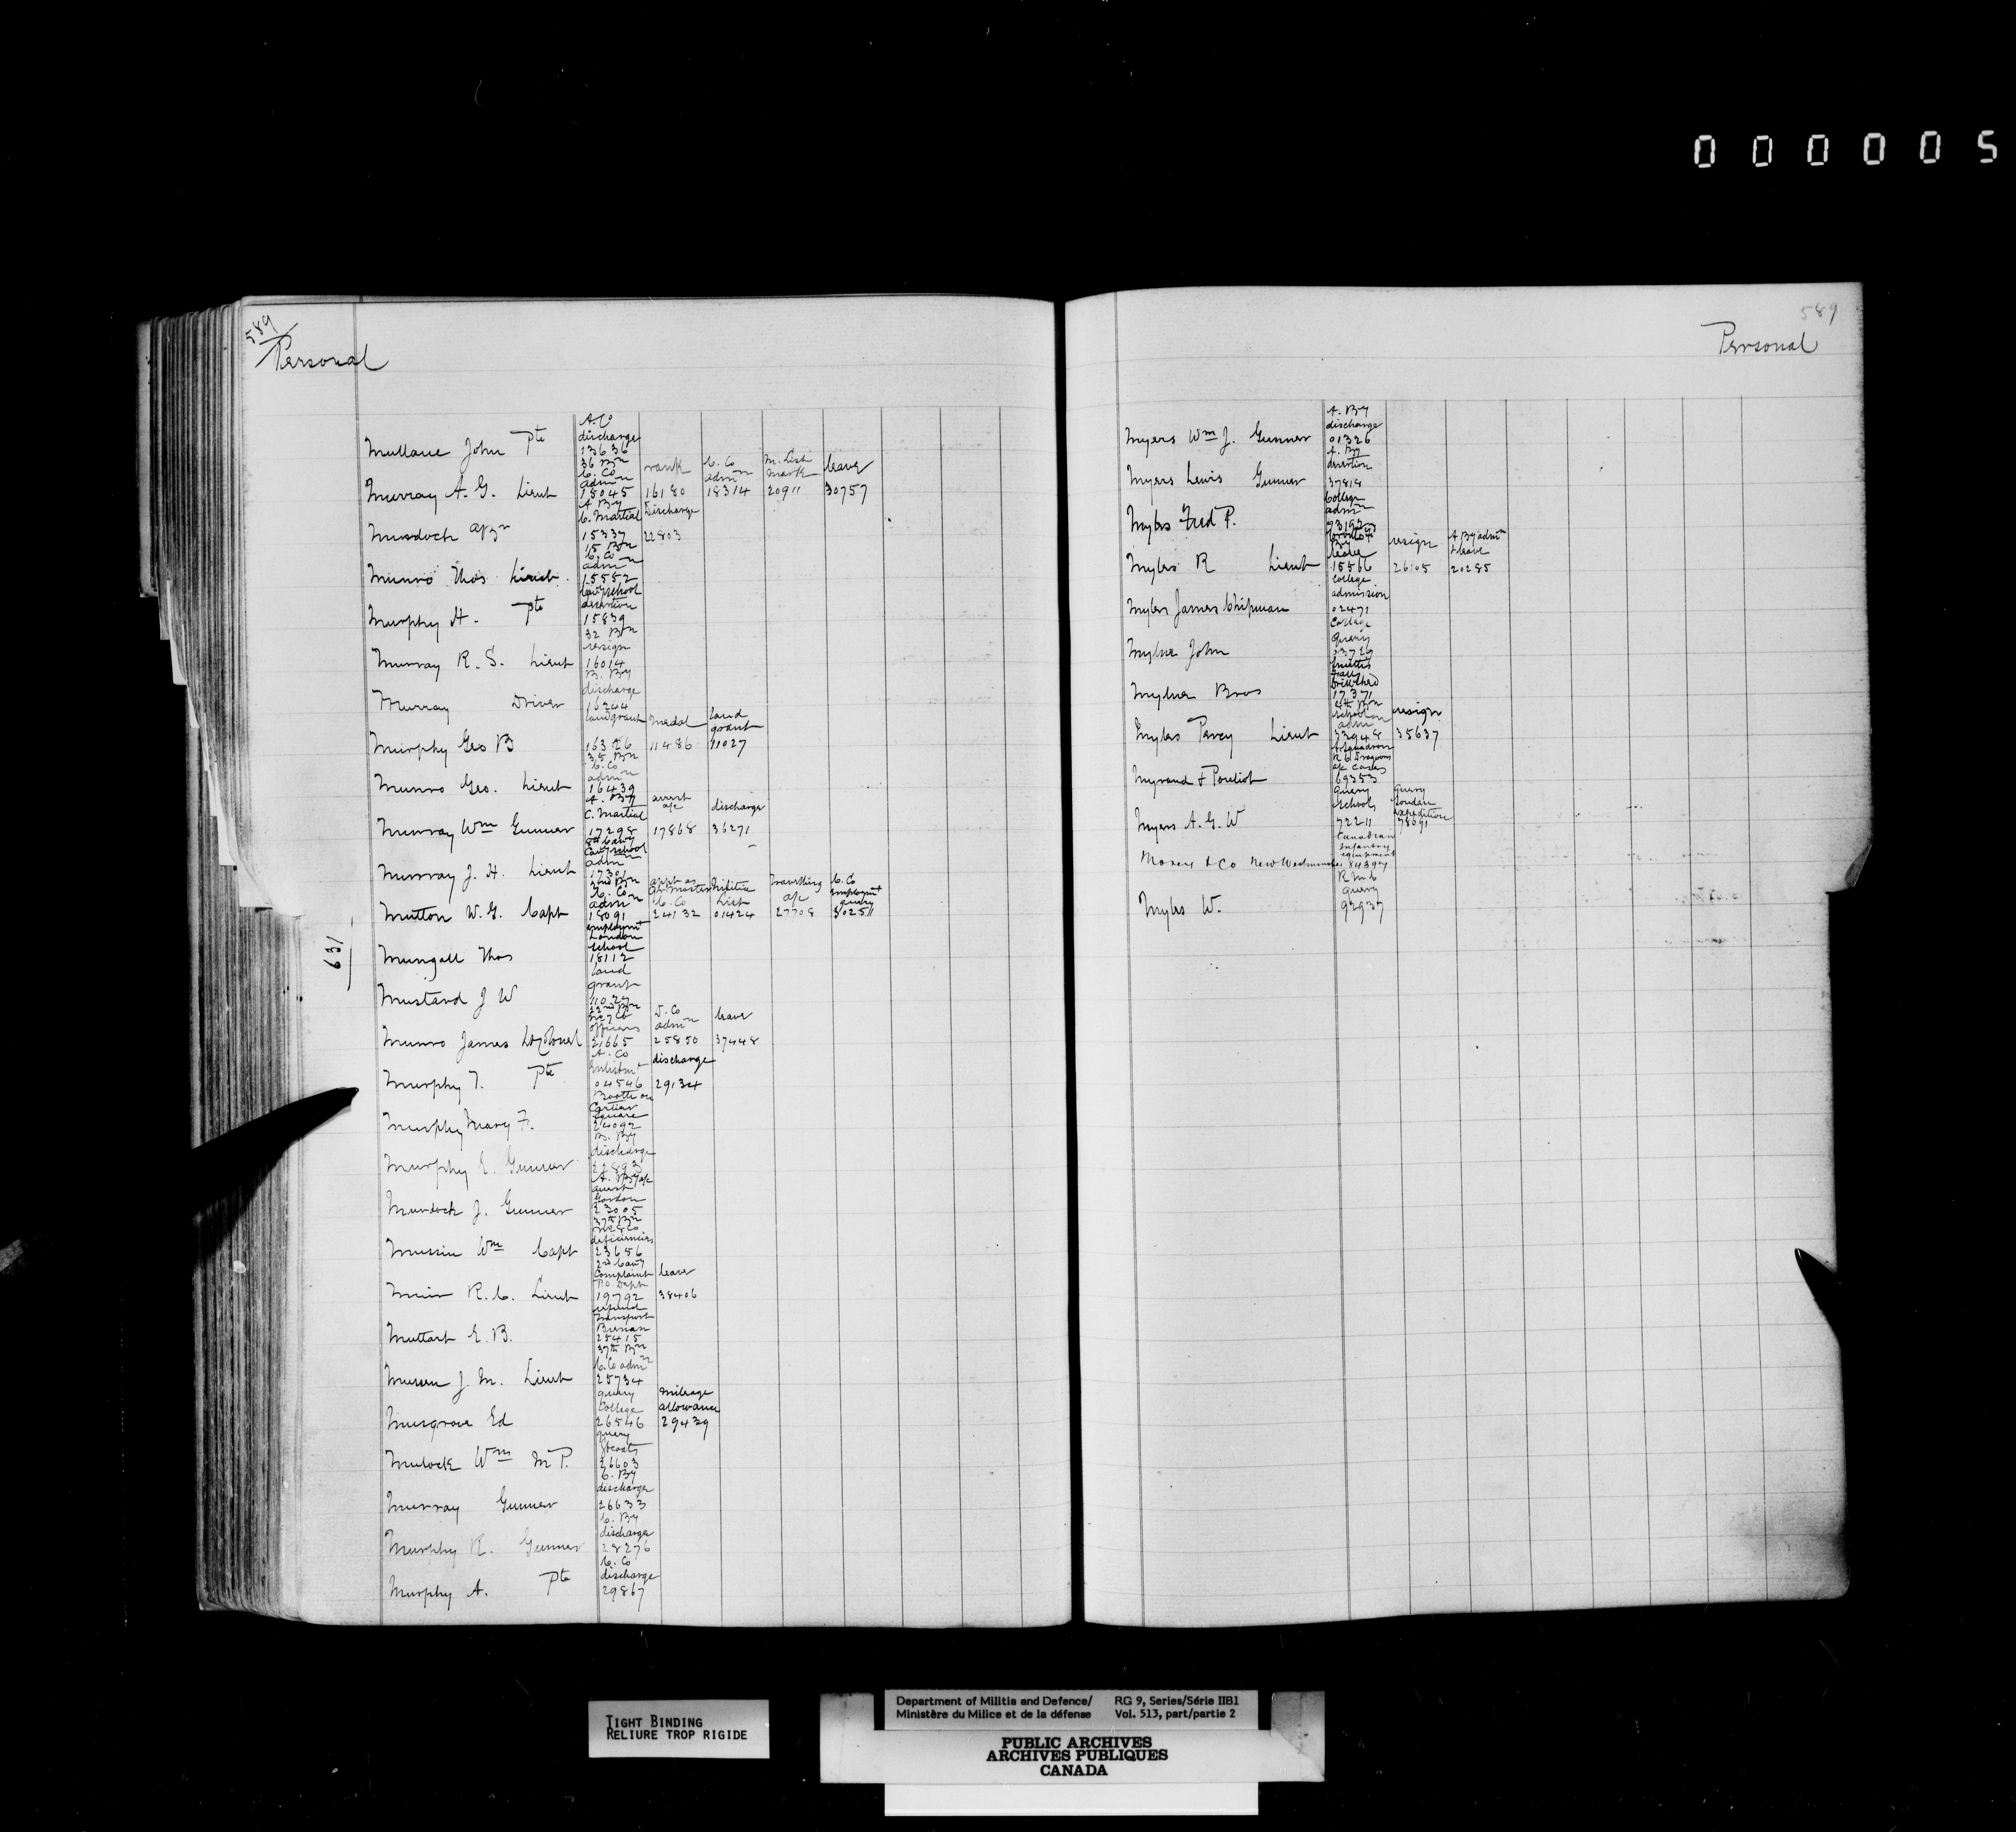 000005
589
Personal
A. Co
discharge
Mullane John Pte 13636
36 Bn
C. Co
admn rank C. Co admn M. List Mark leave
Murray A. G. Lieut 15045 16180 18314 20911 30757
A By
C. Martial Discharge
Murdoch 15337 22803
15 Bn
C. Co
admn
Munro Thos Lieut. 15552
Cavy School
desertion
Murphy H. Pte 15839
32 Bn
resign
Murray R. S. Lieut 16014
B. By
discharge
Murray Driver 16244
land grant medal land grant
Murphy Geo B 16326 11486 11027
35 Bn
C. Co
admn
Munro Geo. Lieut 16439
A. By
C. Martial arrest a/c discharge
Murray Wm Gunner 17298 17868 36271
8th Cavy
Cavy School
admn
Murray J. H. Lieut 17301
2nd Bn
C. Co
admn appt as Qr Master C. Co Militia List Travelling a/c C. Co employmt query
Mutton W. G. Capt 18091 24132 01424 27708 30251
631
employmt
London
School
Mungall Thos 18112
land
grant
Mustard J W 11027
22nd Bn
No 7 Co
officers D. Co admn leave
Munro James Lt Colonel 21665 25850 37448
A. Co
Enlistmt discharge
Murphy T. Pte 04546 29134
Booth on
Cartier
Square
Murphy Mary F. 24092
B. By
discharge
Murphy E. Gunner 22893
A. By a/c
arrest
Gordon
Murdock J. Gunner 23005
37th Bn
No 8 Co
deficiencies
Mussin Wm Capt 23656
2nd Cavy
Complaint
P.O. Dept leave
Muir R. C. Lieut 19792 38406
refund
transport
Brenan
Muttart E. B. 25415
37th Bn
C. Co admn
Mussen J. M. Lieut 25734
query
College mileage allowance
Musgrove Ed 26546 29439
query
Gt coats
Mulock Wm M P. 26603
C. By
discharge
Murray Gunner 26633
C. By
discharge
Murphy R. Gunner 28276
C. Co
discharge
Murphy A. Pte 29867
589
Personal
A. By
discharge
Myers Wm J. Gunner 01326
A. By
desertion
Myers Lewis Gunner 37814
College
admn
Myles Fred P. 03192
Toronto
By
leave resign A By admn & leave
Myles R Lieut 15566 26105 20285
College
admission
Myles James Chipman 02471
College
Query
Mylne John 03729
Smiths
Falls
Drill Shed
Mylne Bros 17371
4th Bn
School
admn resign
Myles Percy Lieut 33948 35637
A Squadron
R C Dragoons
a/c Cases
Myrand & Pouliot 69353
Query
Schools Query Soudan expedition
Myers A. G. W 72211 78691
Canadian
Infantry
equipment
Money & Co New Westminster 84397
R M C
query
Myles W. 92937
TIGHT BINDING
RELIURE TROP RIGIDE
Department of Militia and Defence/ RG 9, Series/Série IIB1
Ministère du Milice et de la défense Vol. 513, part/partie 2
PUBLIC ARCHIVES
ARCHIVES PUBLIQUES
CANADA